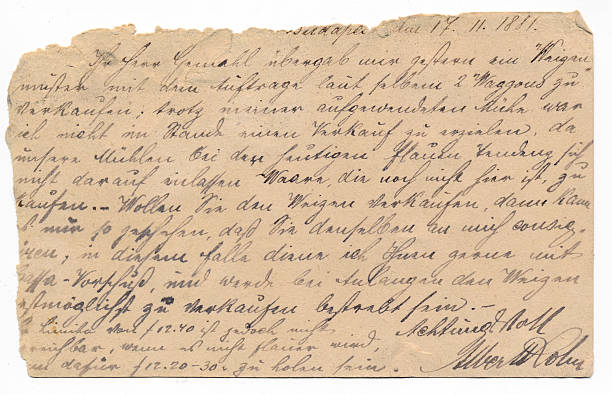 Budapest am 17. 11. 1881.
Ihr Herr Gemahl übergab mir gestern ein Weizen
muster mit dem Auftrage laut selbem 2 Waggons zu
verkaufen; trotz meiner aufgewendeten Mühe war
ich nicht im Stande einen Verkauf zu erzielen, da
unsere Mühlen bei der heutigen flauen Tendenz sich
nicht darauf einlassen Waare, die noch nicht hier ist, zu
kaufen. – Wollen Sie den Weizen verkaufen, dann kann
es nur so geschehen, daß Sie denselben an mich consig-
iren; in diesem Falle diene ich Ihnen gerne mit
Cassa-Vorschuß, und werde bei Anlangen den Weizen
estmöglichst zu verkaufen bestrebt sein. –
Limito von f 12.40 ist jedoch nicht
reichbar, wenn es nicht flauer wird
dafür f 12.20-30. zu holen sein.
Achtungsvoll
Albert